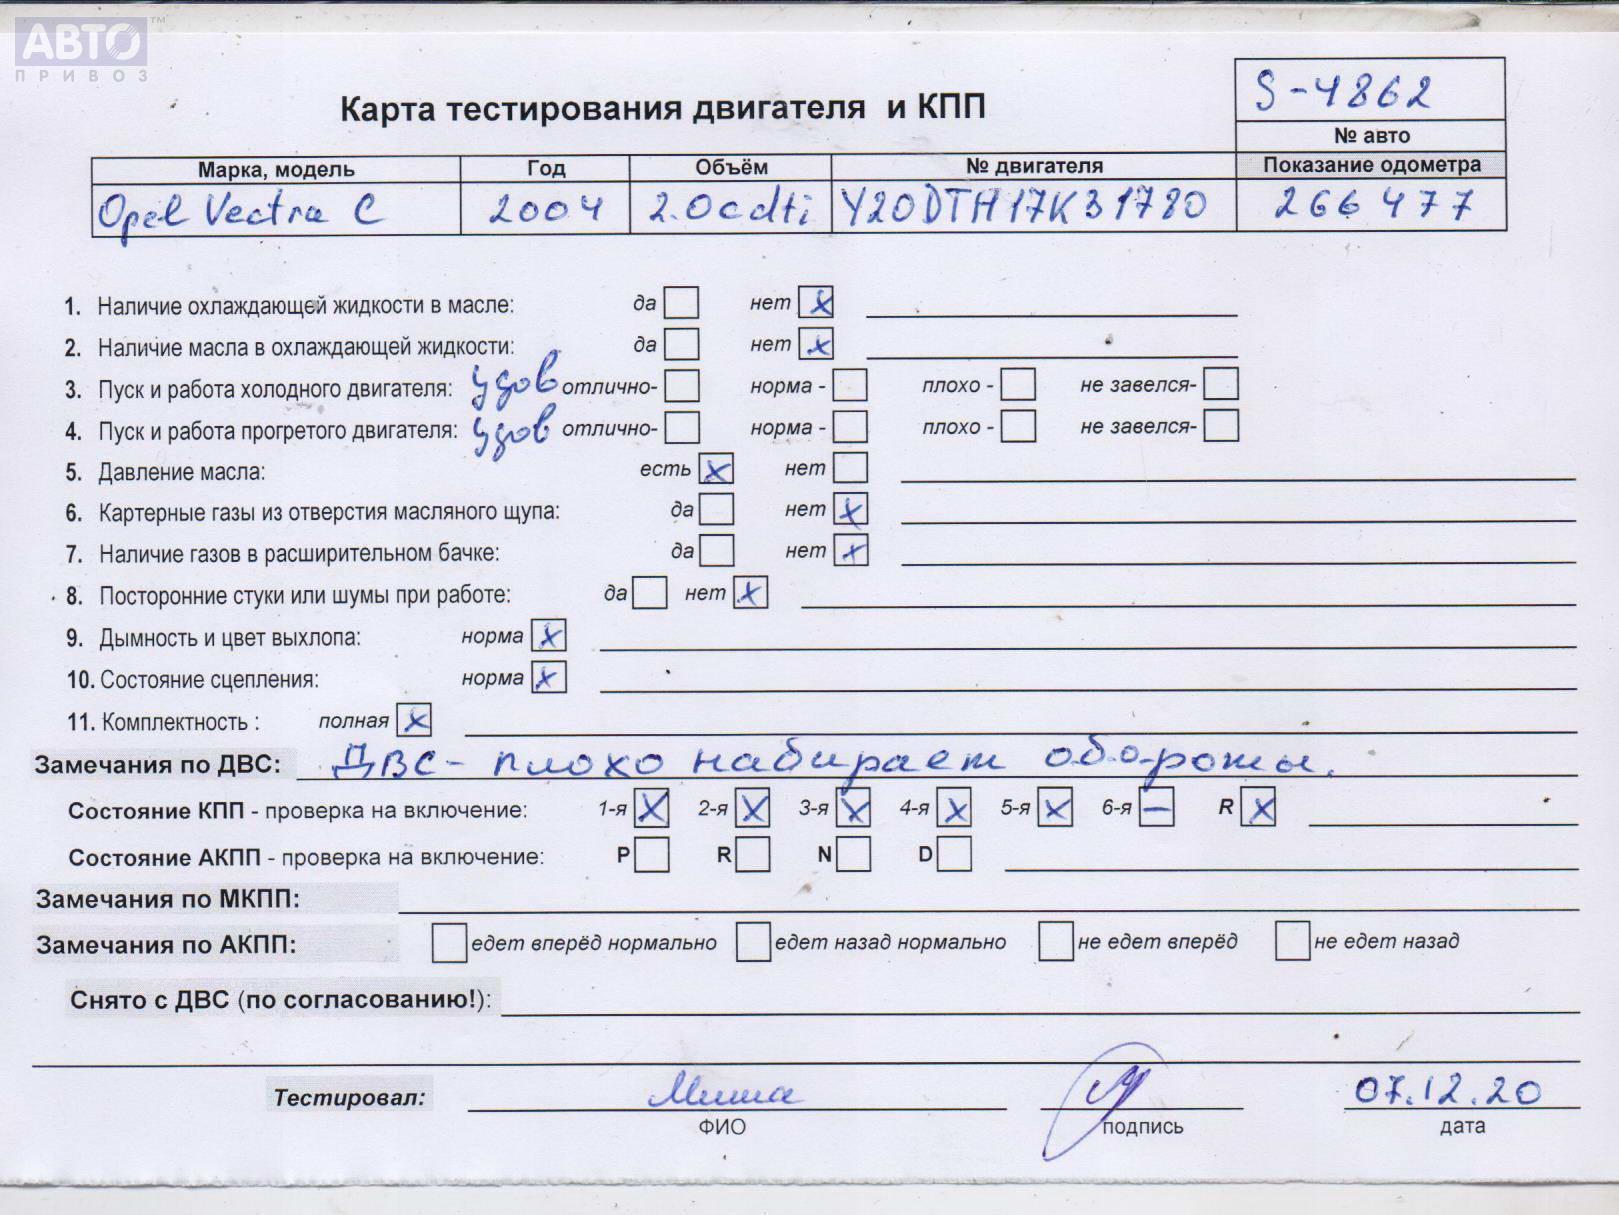 АВТО ™
ПРИВОЗ
S-4862
Карта тестирования двигателя и КПП
№ авто
Марка, модель Год Объём № двигателя Показание одометра
Opel Vectra C 2004 2.0cdti Y20DTH17K31780 266477
1. Наличие охлаждающей жидкости в масле: да нет x
2. Наличие масла в охлаждающей жидкости: да нет x
3. Пуск и работа холодного двигателя: удов отлично- норма - плохо - не завелся-
4. Пуск и работа прогретого двигателя: удов отлично- норма - плохо - не завелся-
5. Давление масла: есть x нет
6. Картерные газы из отверстия масляного щупа: да нет x
7. Наличие газов в расширительном бачке: да нет x
8. Посторонние стуки или шумы при работе: да нет x
9. Дымность и цвет выхлопа: норма x
10. Состояние сцепления: норма x
11. Комплектность : полная x
Замечания по ДВС: ДВС - плохо набирает обороты.
Состояние КПП - проверка на включение: 1-я x 2-я x 3-я x 4-я x 5-я x 6-я – R x
Состояние АКПП - проверка на включение: P R N D
Замечания по МКПП:
Замечания по АКПП: едет вперёд нормально едет назад нормально не едет вперёд не едет назад
Снято с ДВС (по согласованию!):
Тестировал: Миша 07.12.20
ФИО подпись дата